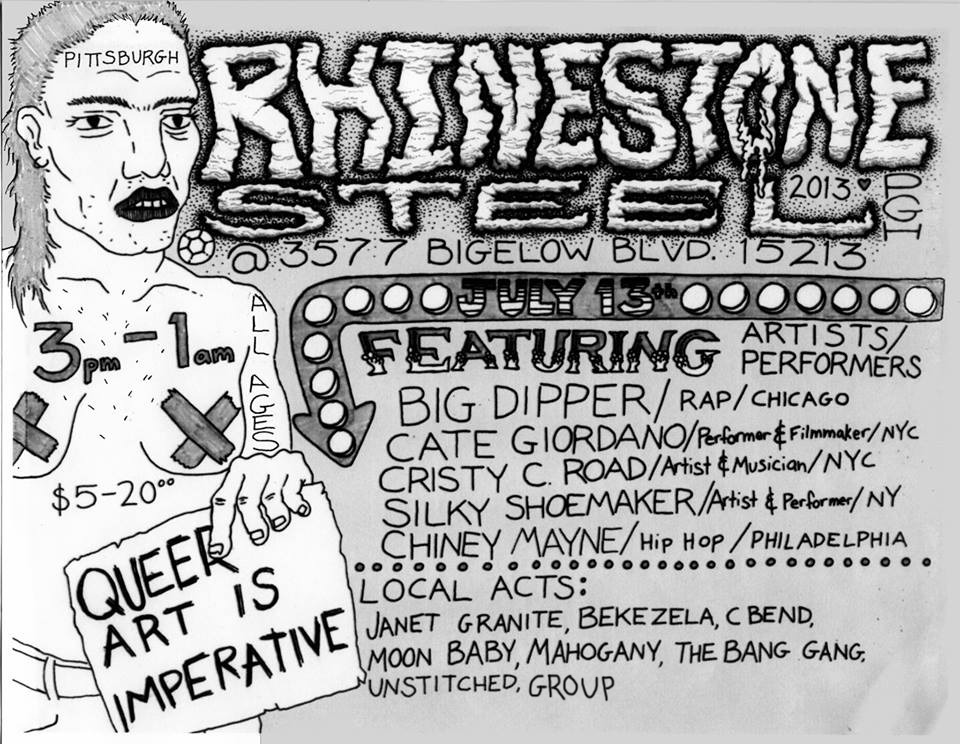 PITTSBURGH
RHINESTONE
STEEL
2013 ♥ PGH
@ 3577 BIGELOW BLVD. 15213
JULY 13th
3pm - 1am
ALL AGES
$5-20⁰⁰
QUEER
ART IS
IMPERATIVE
FEATURING ARTISTS/
PERFORMERS
BIG DIPPER/ RAP/ CHICAGO
CATE GIORDANO/Performer & Filmmaker/NYC
CRISTY C. ROAD/Artist & Musician/NYC
SILKY SHOEMAKER/Artist & Performer/NY
CHINEY MAYNE/ HIP HOP /PHILADELPHIA
LOCAL ACTS:
JANET GRANITE, BEKEZELA, C BEND,
MOON BABY, MAHOGANY, THE BANG GANG,
UNSTITCHED, GROUP